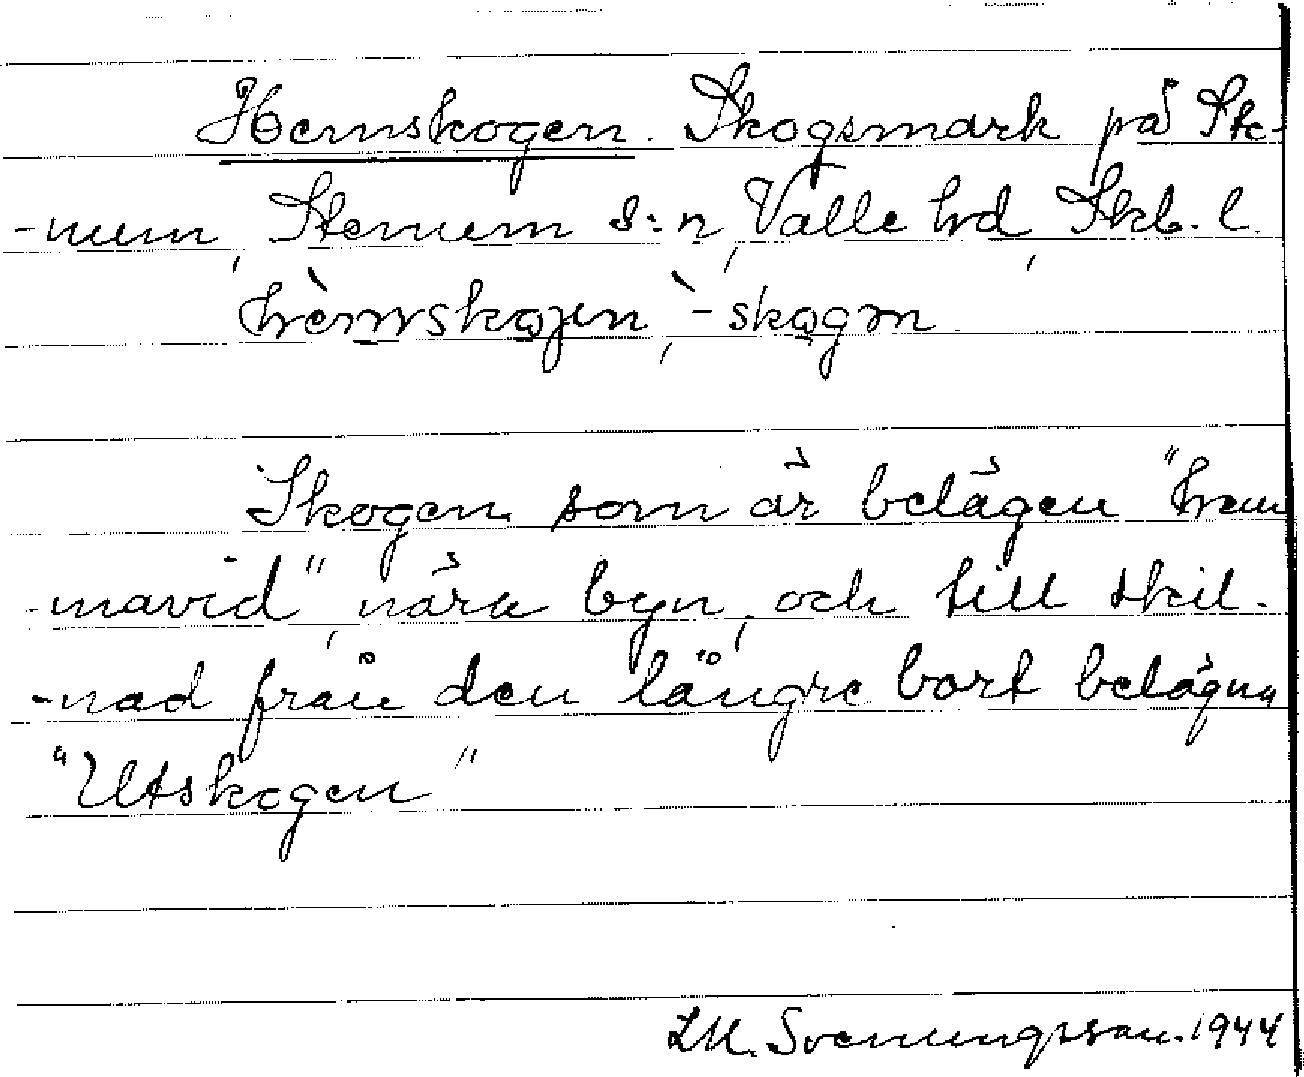 Hemskogen. Skogsmark på Ste-
-num, Stenum s:n, Valle hd, Skb. l.
hèmskojen, `-skogen
Skogen som är belägen "hem
-mavid", nära byn, och till skil-
-nad från den längre bort belägna
"Utskogen"
LM. Svenungsson. 1944